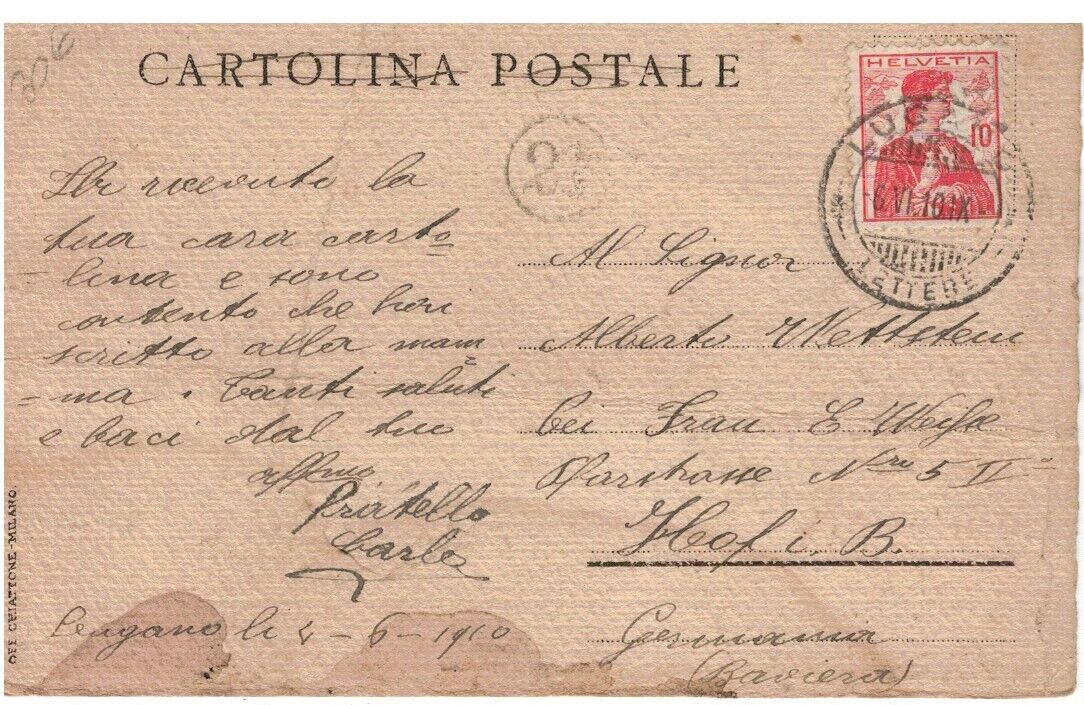 306
CARTOLINA POSTALE
HELVETIA
10
LUGANO
6.VI.10.IX
LETTERE
Ho ricevuto la
tua cara carto
=lina e sono
contento che hai
scritto alla mam
=ma. Tanti saluti
e baci dal tuo
affmo
Fratello
Carlo
li 4-6-1910
Al Signor
Alberto Wettstein
bei Frau E
Nro 5 II
Hof i. B.
Germania
(Baviera)
OFF. CHIATTONE-MILANO.